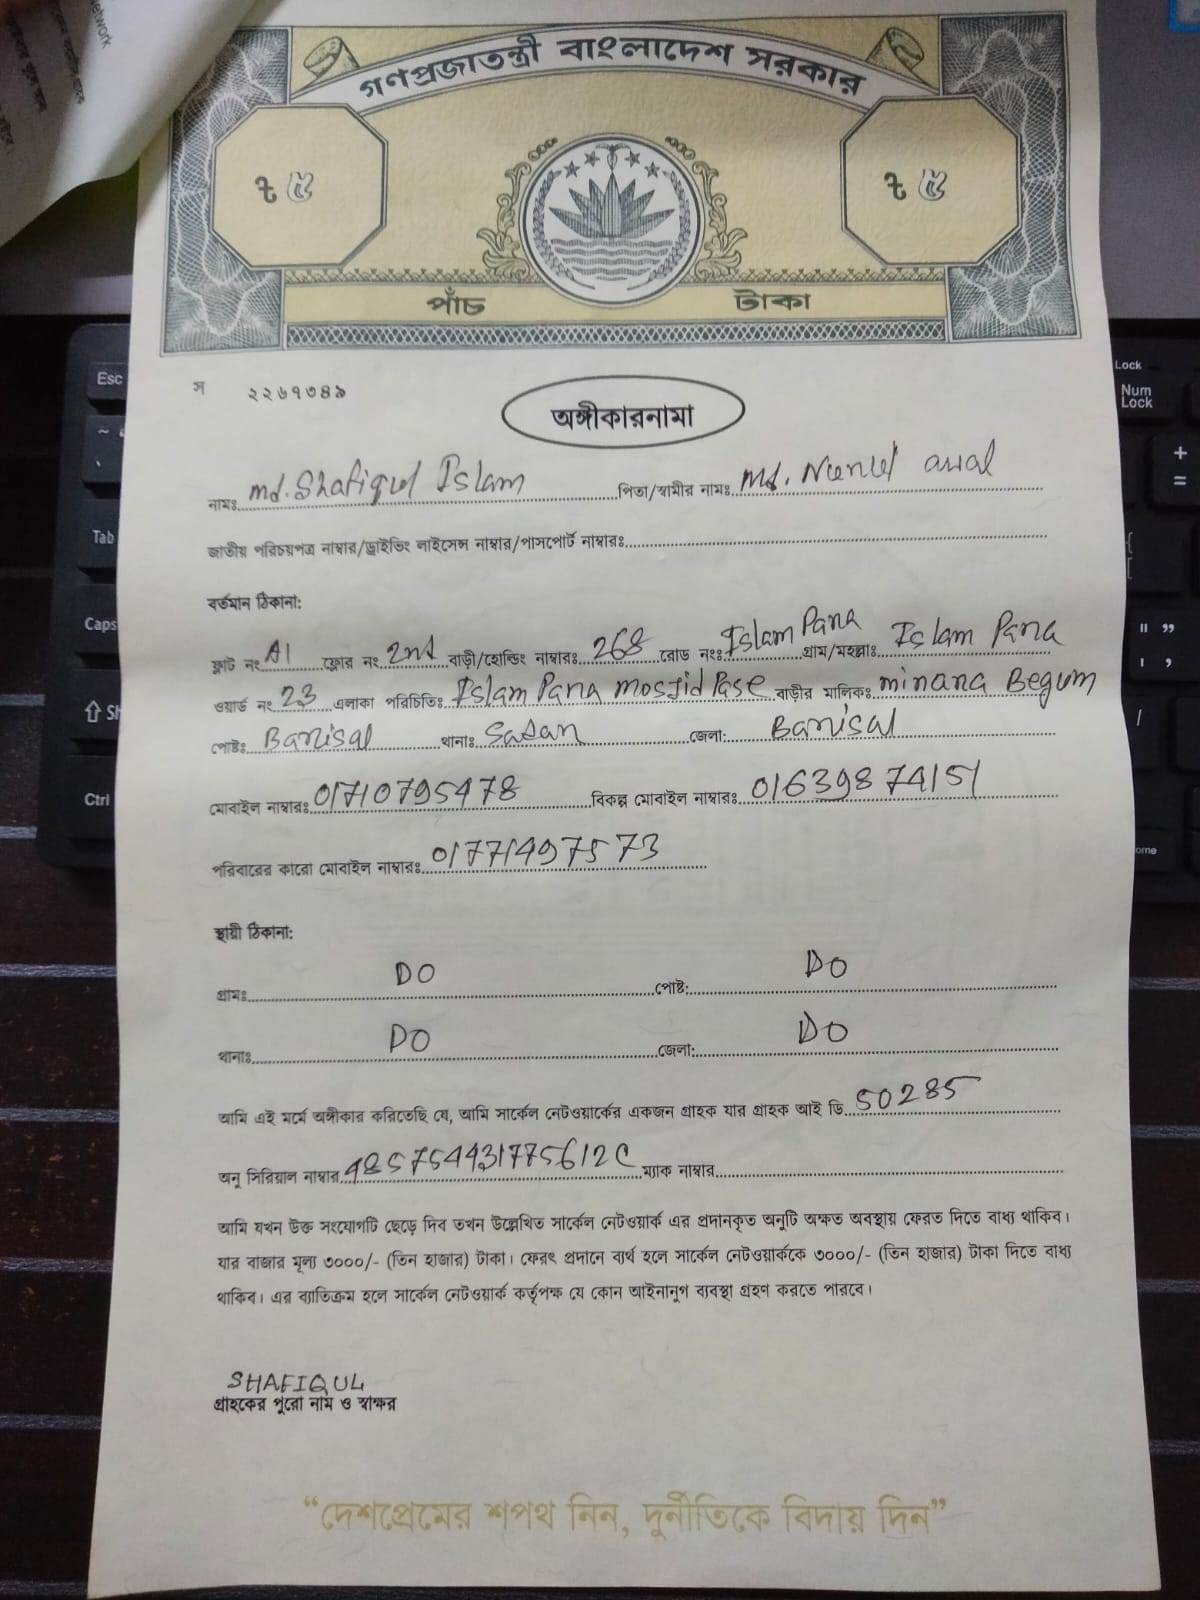 Network
গণপ্রজাতন্ত্রী বাংলাদেশ সরকার
৳ ৫ ৳ ৫
পাঁচ টাকা
স ২২৬৭৩৪৯
অঙ্গীকারনামা
নামঃ Md. Shafiqul Islam পিতা/স্বামীর নামঃ Md. Nurul awal
জাতীয় পরিচয়পত্র নাম্বার/ড্রাইভিং লাইসেন্স নাম্বার/পাসপোর্ট নাম্বারঃ
বর্তমান ঠিকানা:
ফ্লাট নং A1 ফ্লোর নং 2nd বাড়ী/হোল্ডিং নাম্বারঃ 268 রোড নংঃ Islam Para গ্রাম/মহল্লাঃ Islam Para
ওয়ার্ড নং 23 এলাকা পরিচিতিঃ Islam Para mosjid Pase বাড়ীর মালিকঃ minara Begum
পোষ্টঃ Barisal থানাঃ Sadar জেলা: Barisal
মোবাইল নাম্বারঃ 01710795478 বিকল্প মোবাইল নাম্বারঃ 01639874151
পরিবারের কারো মোবাইল নাম্বারঃ 01771497573
স্থায়ী ঠিকানা:
গ্রামঃ DO পোষ্ট: DO
থানাঃ DO জেলা: DO
আমি এই মর্মে অঙ্গীকার করিতেছি যে, আমি সার্কেল নেটওয়ার্কের একজন গ্রাহক যার গ্রাহক আই ডি 50285
অনু সিরিয়াল নাম্বার 485754431775612C ম্যাক নাম্বার
আমি যখন উক্ত সংযোগটি ছেড়ে দিব তখন উল্লেখিত সার্কেল নেটওয়ার্ক এর প্রদানকৃত অনুটি অক্ষত অবস্থায় ফেরত দিতে বাধ্য থাকিব।
যার বাজার মূল্য ৩০০০/- (তিন হাজার) টাকা। ফেরৎ প্রদানে ব্যর্থ হলে সার্কেল নেটওয়ার্ককে ৩০০০/- (তিন হাজার) টাকা দিতে বাধ্য
থাকিব। এর ব্যাতিক্রম হলে সার্কেল নেটওয়ার্ক কর্তৃপক্ষ যে কোন আইনানুগ ব্যবস্থা গ্রহণ করতে পারবে।
SHAFIQUL
গ্রাহকের পুরো নাম ও স্বাক্ষর
“দেশপ্রেমের শপথ নিন, দুর্নীতিকে বিদায় দিন”
Esc
Tab
Caps
Ctrl
Lock
Num
Lock